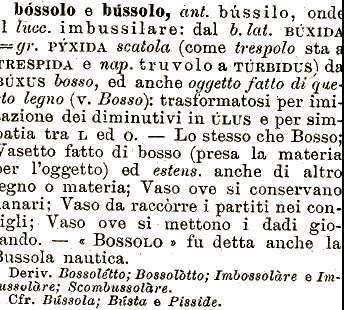 bóssolo e bússolo, ant. bússilo, onde
l lucc. imbussilare: dal b. lat. BÚXIDA
=gr. PÝXIDA scatola (come trespolo sta a
TRESPIDA e nap. truvolo a TÚRBIDUS) da
BÚXUS bosso, ed anche oggetto fatto di que-
to legno (v. Bosso): trasformatosi per imi-
azione dei diminutivi in ÙLUS e per sim-
patia tra L ed O. — Lo stesso che Bosso;
Vasetto fatto di bosso (presa la materia
per l'oggetto) ed estens. anche di altro
egno o materia; Vaso ove si conservano
anari; Vaso da raccòrre i partiti nei con-
igli; Vaso ove si mettono i dadi gio-
ando. — « BOSSOLO » fu detta anche la
Bussola nautica.
Deriv. Bossolétto; Bossolòtto; Imbossolàre e Im-
ussolàre; Scombussolàre.
Cfr. Bússola; Bústa e Pisside.